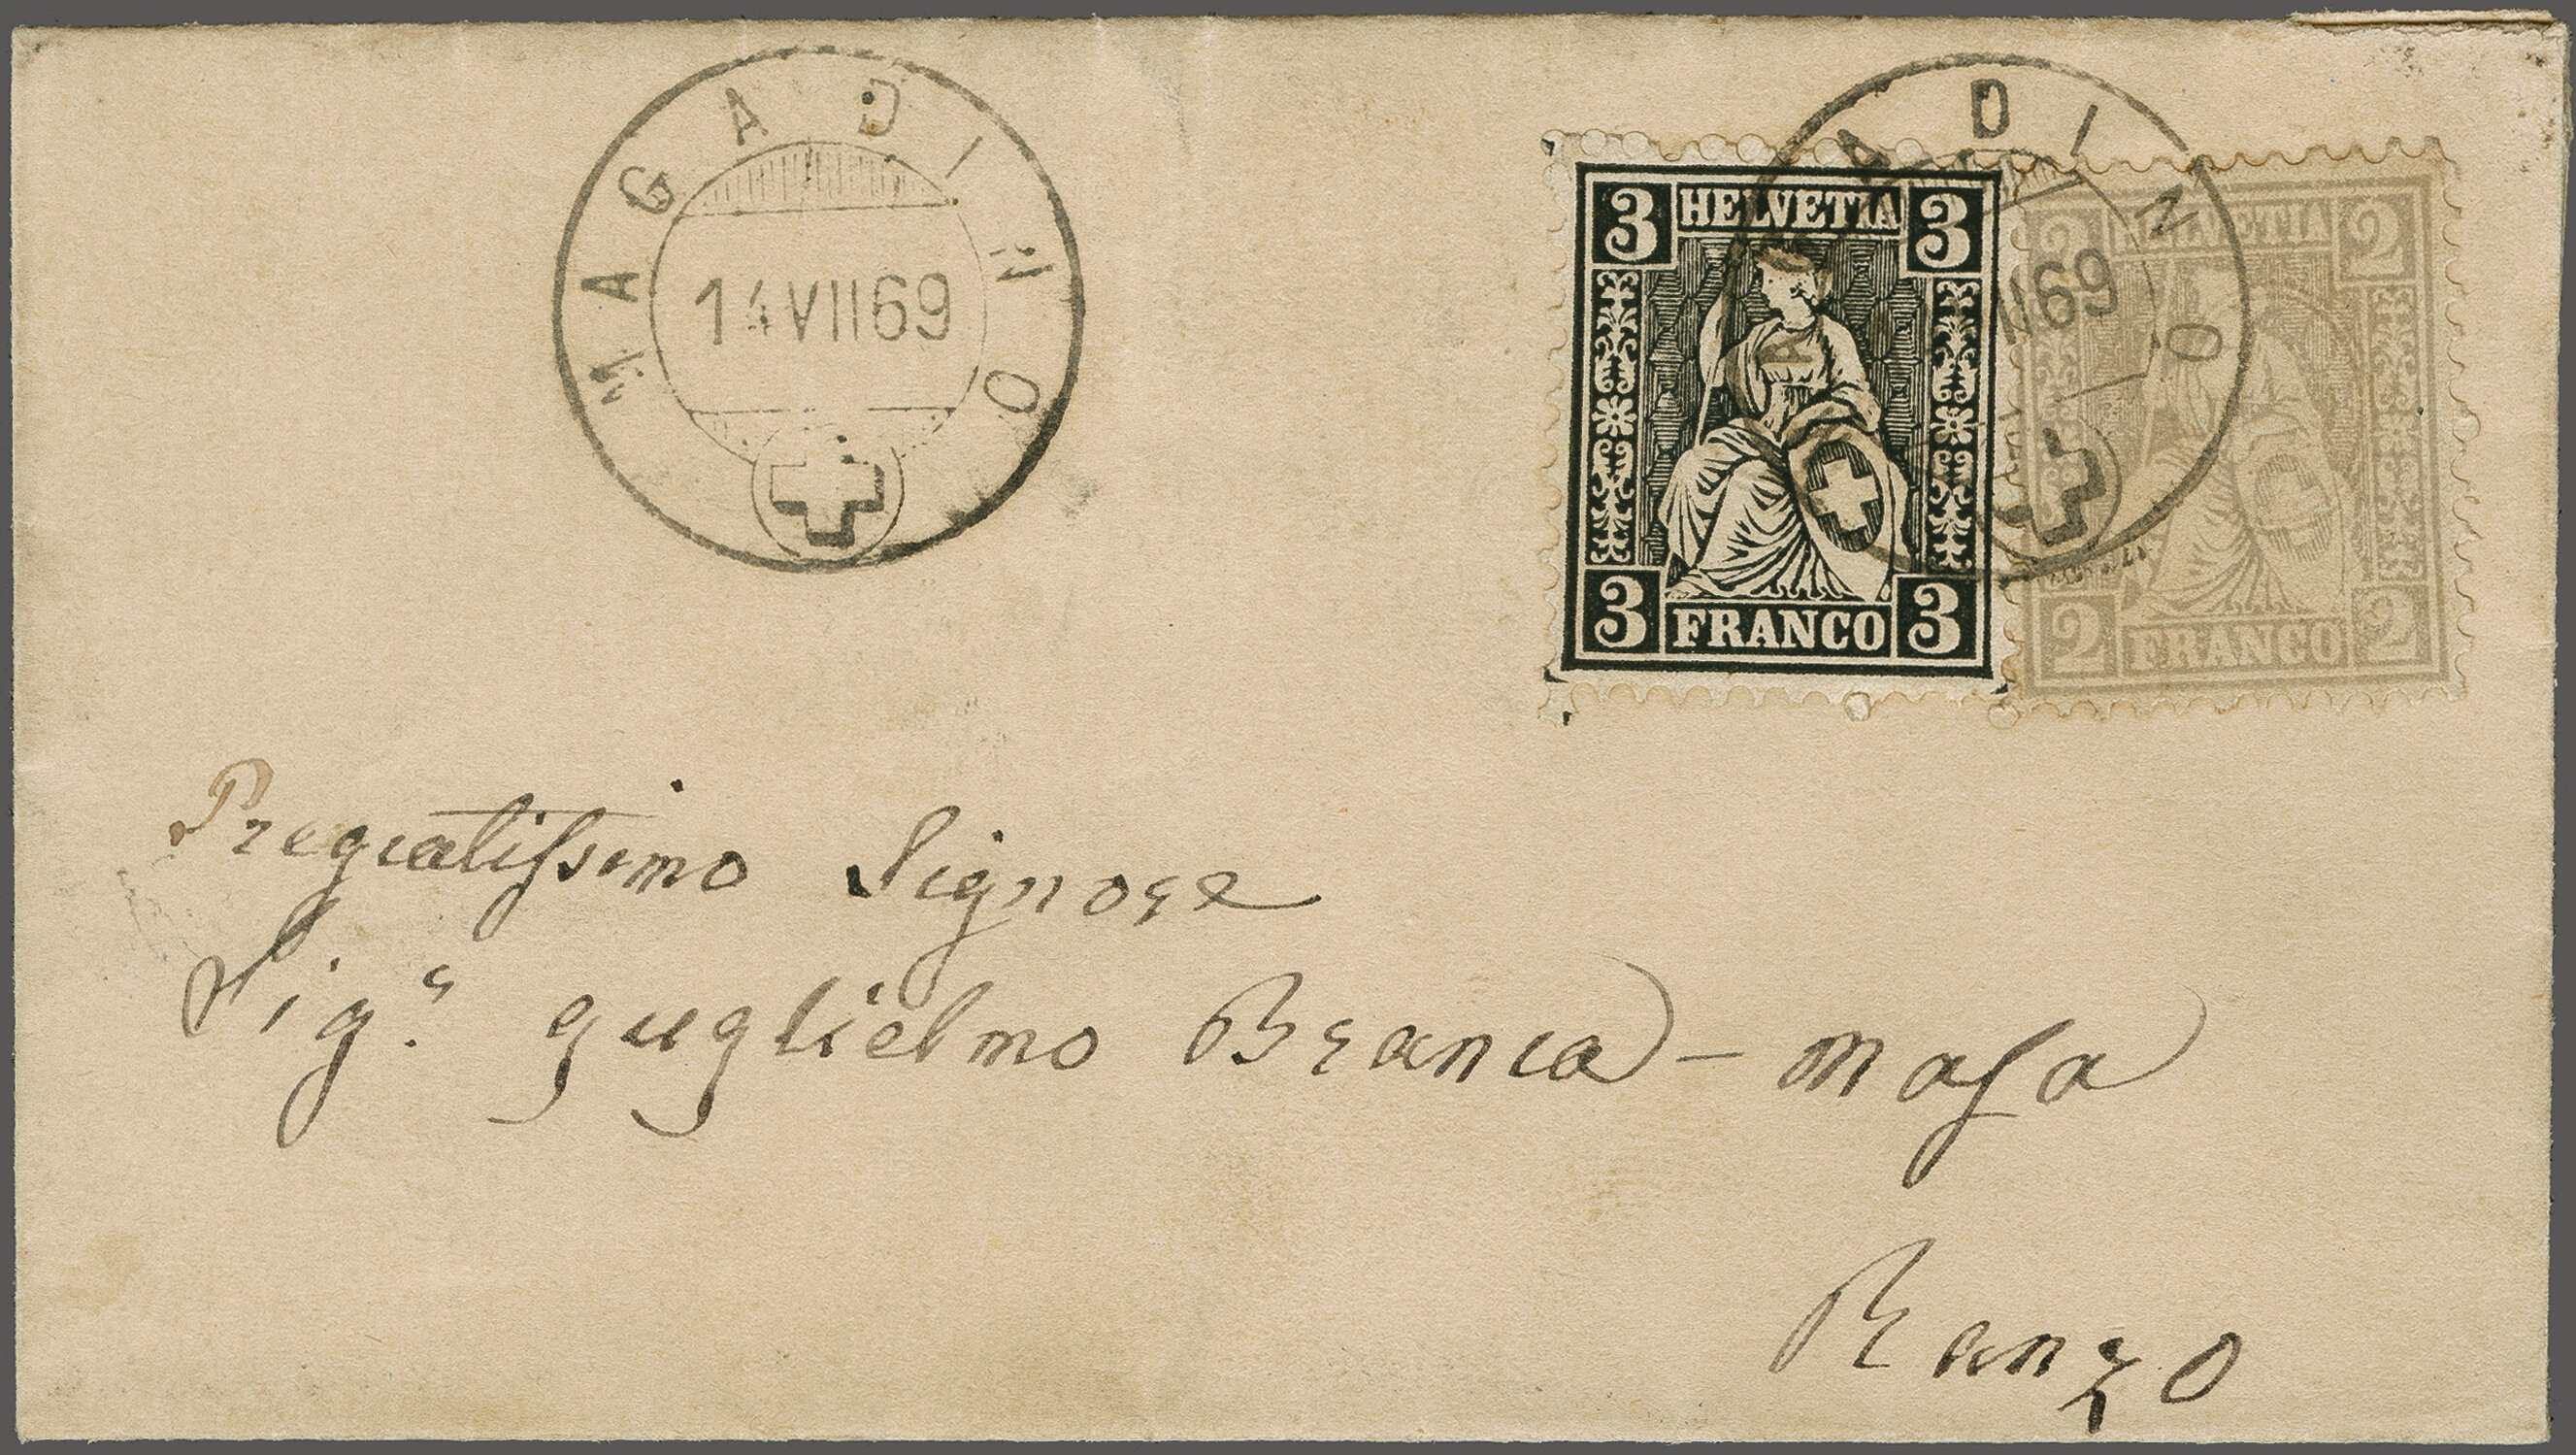 MAGADINO
14 VII 69
MAGADINO
VII 69
3 HELVETIA 3
3 FRANCO 3
2 HELVETIA 2
2 FRANCO 2
Pregiatissimo Signore
Sig.r guglielmo Branca - masa
Ranzo